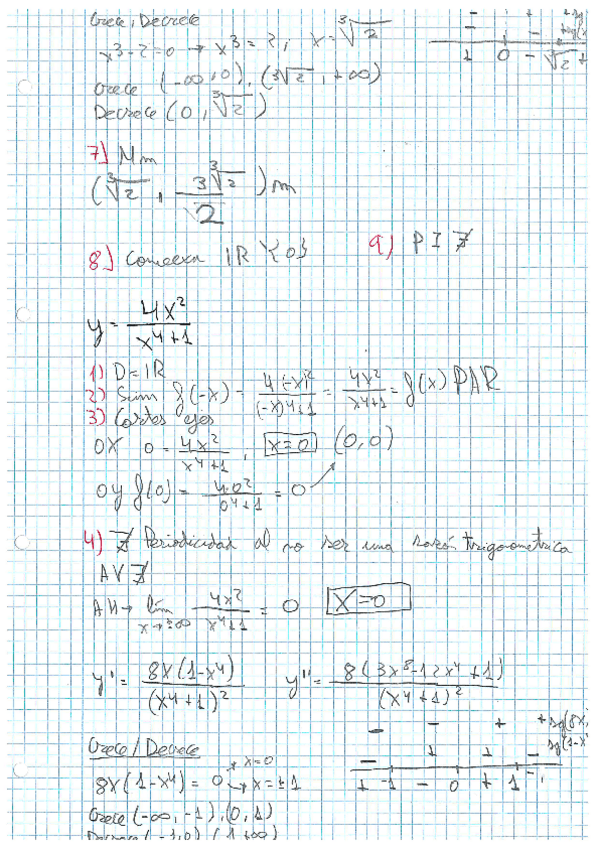 Crece, Decrece
x³-2=0 → x³=2; x=∛2
Crece (-∞,0), (∛2, +∞)
Decrece (0, ∛2)
+ 0 - ∛2 +
7) Mm
(∛2, 3∛2/2) m
8) Concexa IR \{0}
9) P I ∄
y = 4x²/(x⁴+1)
1) D=IR
2) Sim f(-x) = 4(-x)²/((-x)⁴+1) = 4x²/(x⁴+1) = f(x) PAR
3) Cortes ejes
OX 0 = 4x²/(x⁴+1), x=0 (0,0)
OY f(0) = 4·0²/(0⁴+1) = 0
4) ∄ Periodicidad al no ser una razón trigonometrica
AV ∄
AH → lim x→±∞ 4x²/(x⁴+1) = 0 X=0
y' = 8x(1-x⁴)/(x⁴+1)² y'' = 8(3x⁸-12x⁴+1)/(x⁴+1)²
- - + + sg(8x)
- + + - sg(1-x⁴)
+ -1 - 0 + 1 -
Crece/Decrece
8x(1-x⁴) = 0 → x=0
→ x=±1
Crece (-∞,-1), (0,1)
Decrece (-1,0) (1,+∞)